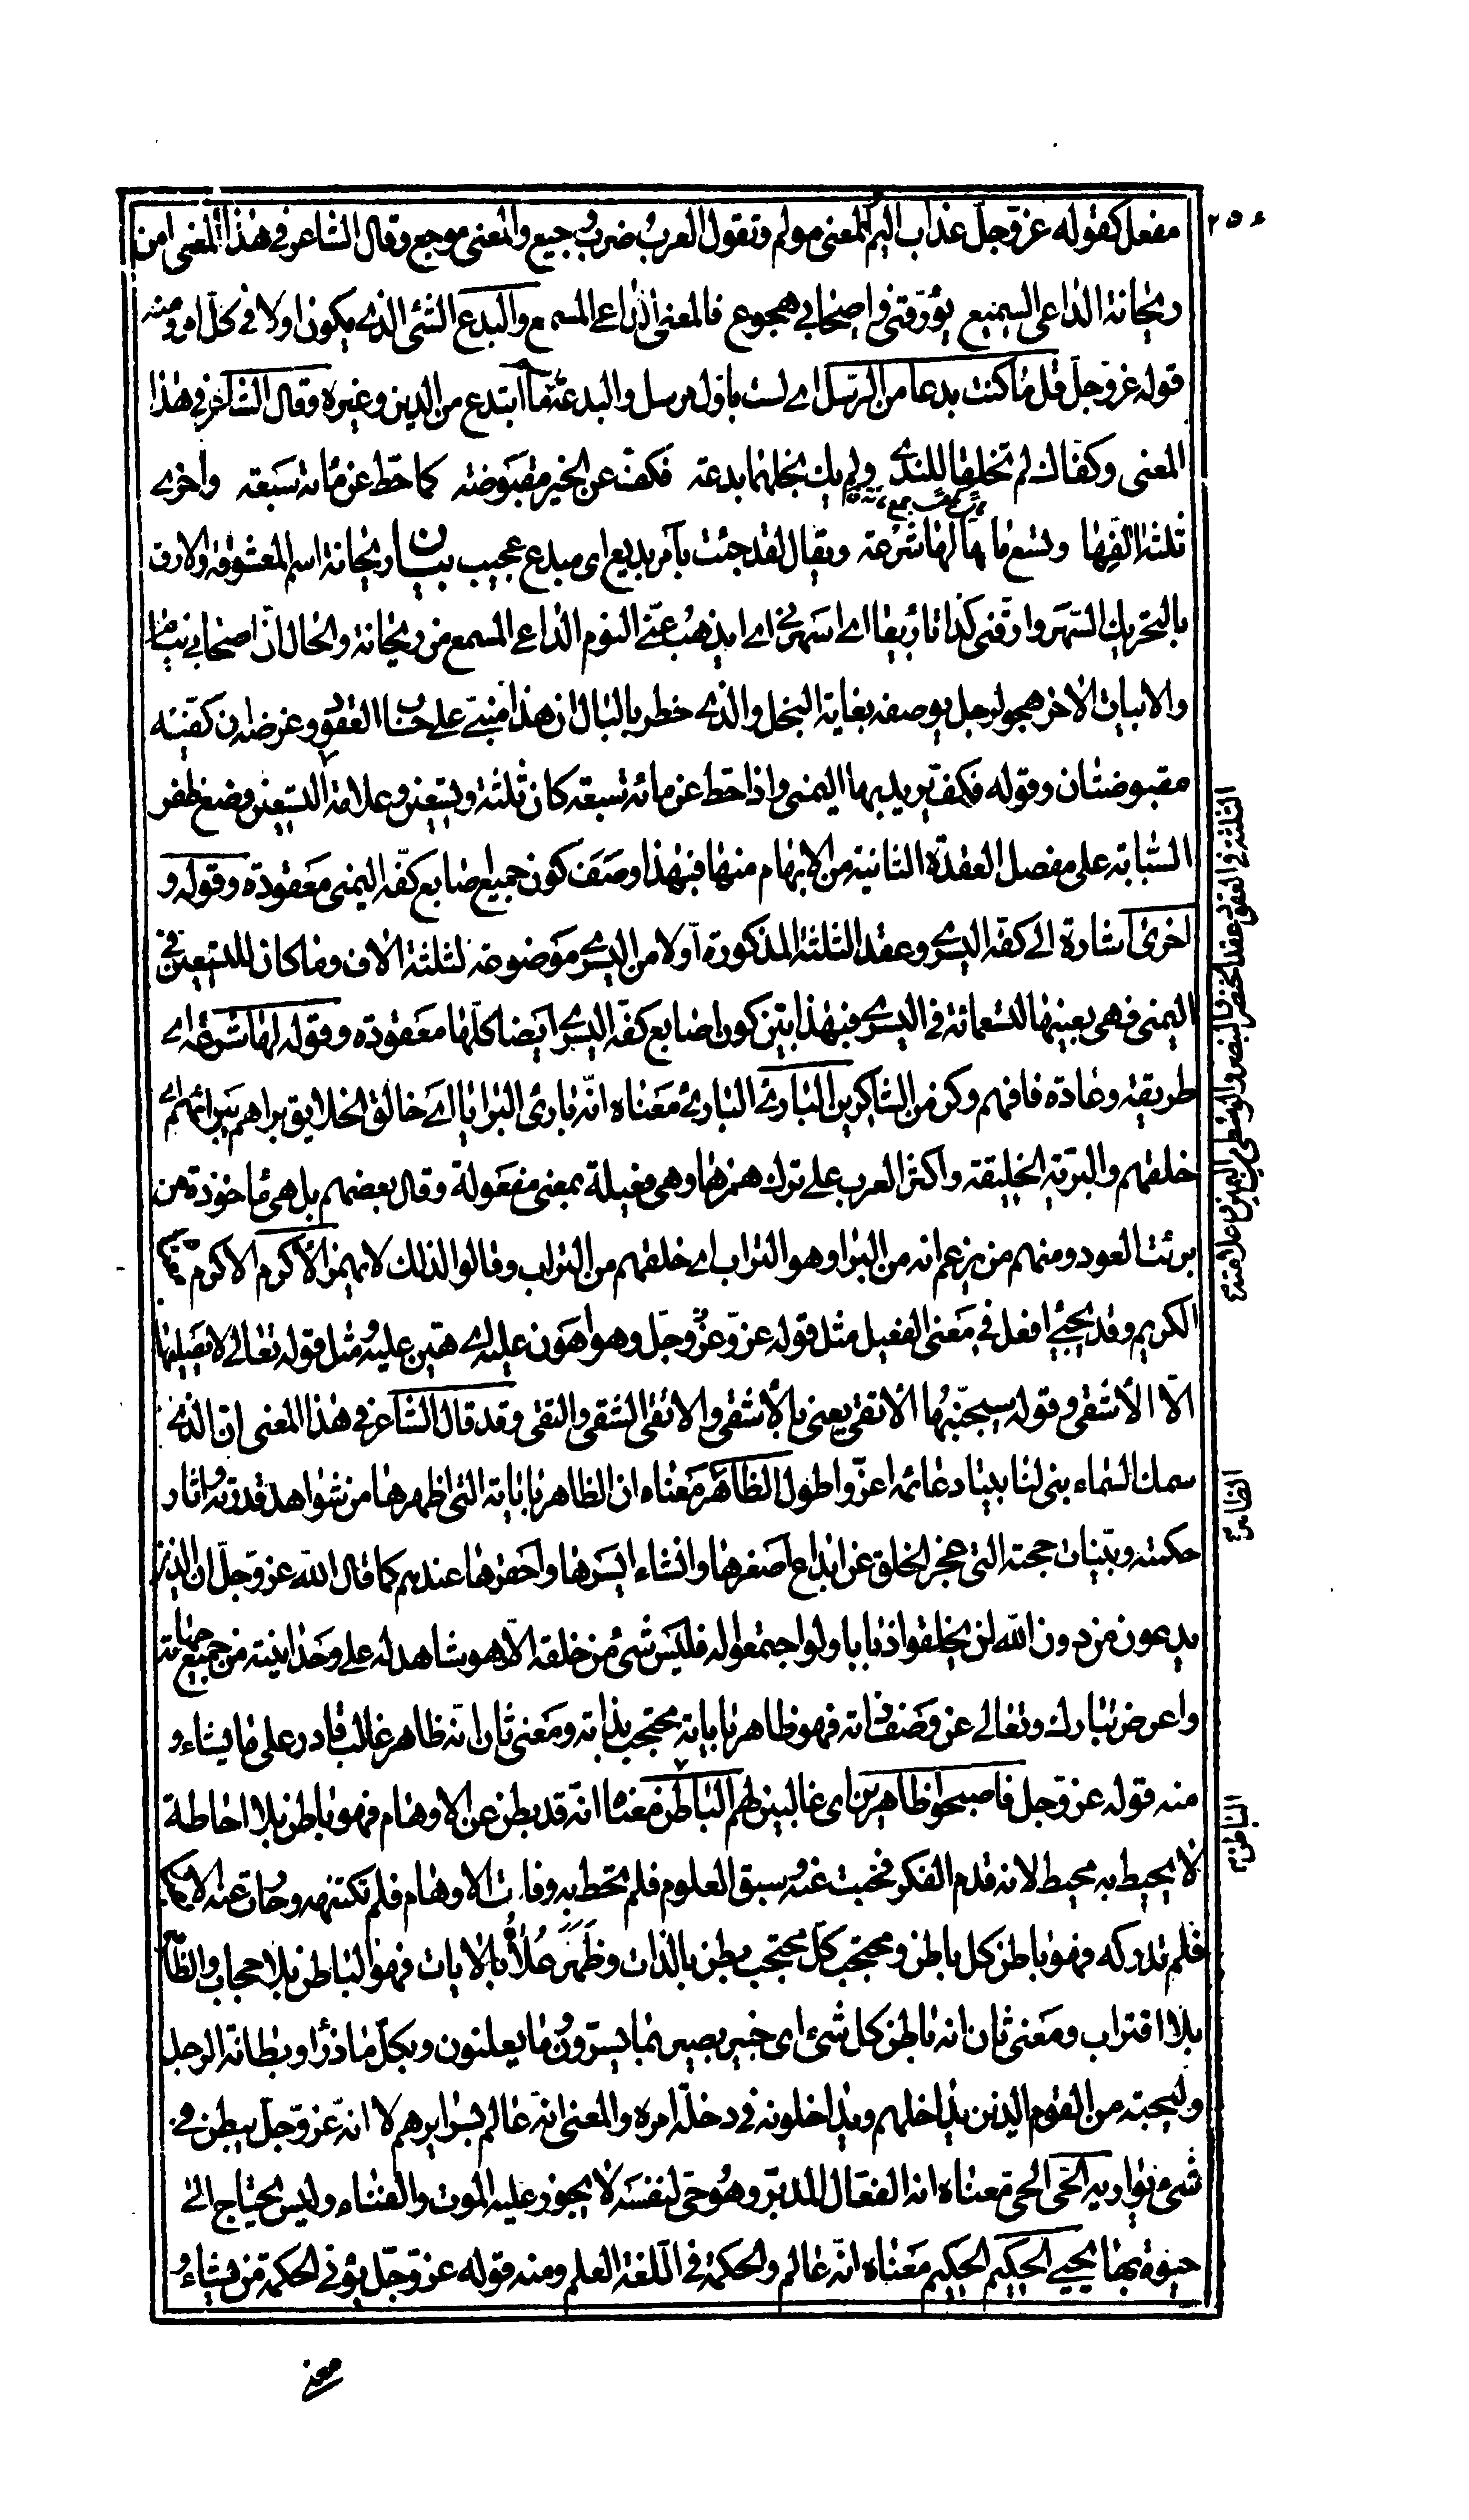 ٢٥٤
مفعل كقوله عزوجل عذاب اليم المعنى مولم وتقول العرب ضرب وجيع والمعنى موجع وقال الشاعر في هذا المعنى امن
ريحانة الداعى السميع يؤرقني واصحابي هجوع فالمعنى الداعي المسمع والبدع الشئ الذي يكون اولا في كل امر ومنه
قوله عزوجل قل ما كنت بدعا من الرسل اي لست باول مرسل والبدعة ما ابتدع من الدين وغيره وقال الشاعر في هذا
المعنى وكفاك لم تخلقا للندى ولم يك بخلهما بدعة فكف عن الخير مقبوضة كما حط عن مائة سبعة واخرى
ثلثة الفها وتسع مائها لها شرعة ويقال لقد جئت بامر بديع اى مبدع عجيب بيان ريحانة اسم المعشوقة والارق
بالتحريك السهر وارقنى كذا تاريقا اي اسهرني اي ايذهب عني النوم الداعي المسمع من ريحانة والحال ان اصحابي نيام
والابيات الاخر هجو لرجل يوصفه بغاية البخل والذي خطر بالبال ان هذا مبتن على حساب العقود وغرضه ان كفيه
مقبوضتان وقوله فكف يريد بها اليمنى واذا حط عن مائة سبعة كان ثلثة وتسعين وعلامة التسعين وضع ظفر
السبابة على مفصل العقدة الثانية من الابهام منها فبهذا وصف كون جميع اصابع كفه اليمنى معقودة وقوله و
اخرى اشارة الى كفه اليسرى وعقد الثلثة المذكورة اولا من اليسرى موضوعة لثلثة الاف وما كان للتسعين في
اليمنى فهى بعينها لتسعمائة في اليسرى فبهذا بين كون اصابع كفه اليسرى ايضا كلها معقودة وقوله لها شرعة اي
طريقة وعادة فافهم وكن من الشاكرين البارئ البارئ معناه انه بارئ البرايا اي خالق الخلايق براهم يبرائهم اي
خلقهم والبرية الخليقة واكثر العرب على ترك همزها وهى فعيلة بمعنى مفعولة وقال بعضهم بل هي ماخوذة من
برئت العود ومنهم من يزعم انه من البرا وهو التراب اي خلقهم من التراب وقالوا لذلك لا يهمز الاكرم الاكرم معناه
الكريم وقد يجيئ افعل في معنى الفعيل مثل قوله عز وعز وجل وهو اهون عليه اي هين عليه ومثل قوله تعالى لا يصليها
الا الاشقى وقوله سيجنبها الاتقى يعنى بالاشقى والاتقى الشقى والتقى وقد قال الشاعر في هذا المعنى ان الذي
سمك السماء بنى لنا بيتا دعائمه اعز واطول الظاهر معناه ان الظاهر باياته التى اظهرها من شواهد قدرته واثار
حكمته وبينات حجته التى عجز الخلق عن ابداع اصغرها وانشاء ايسرها واحقرها عندهم كما قال الله عزوجل ان الذين
يدعون من دون الله لن يخلقوا ذبابا ولو اجتمعوا له فليس شئ من خلقه الا هو شاهد له على وحدانيته من جميع جهاته
واعرض تبارك وتعالى عن وصف ذاته فهو ظاهر باياته محتجب بذاته ومعنى ثان انه ظاهر غالب قادر على ما يشاء و
منه قوله عزوجل فاصبحوا ظاهرين اى غالبين لهم الباطن معناه انه قد بطن عن الاوهام فهو باطن بلا احاطة
لا يحيط به محيط لانه قدم الفكر فخبت عنه وسبق العلوم فلم تحط به وفات الاوهام فلم تكتنهه وحارت عنه الابصار
فلم تدركه وفهو باطن كل باطن ومحتجب كل محتجب بطن بالذات وظهر وعلا بالايات فهو الباطن بلا حجاب والظاهر
بلا اقتراب ومعنى ثان انه باطن كل شئ اى خبير بصير بما يسرون وما يعلنون وبكل ما ذرا وبطانة الرجل
وليجته من القوم الذين يداخلهم ويداخلونه في دخلة امره والمعنى انه عالم بسرايرهم لا انه عزوجل يبطن في
شئ يواريه الحى الحى معناه انه الفعال المدبر وهو حى لنفسه لا يجوز عليه الموت والفناء وليس يحتاج الى
حيوة بها يحيى الحكيم الحكيم معناه انه عالم والحكمة في اللغة العلم ومنه قوله عزوجل يؤتى الحكمة من يشاء و
الظاهر
الباطن